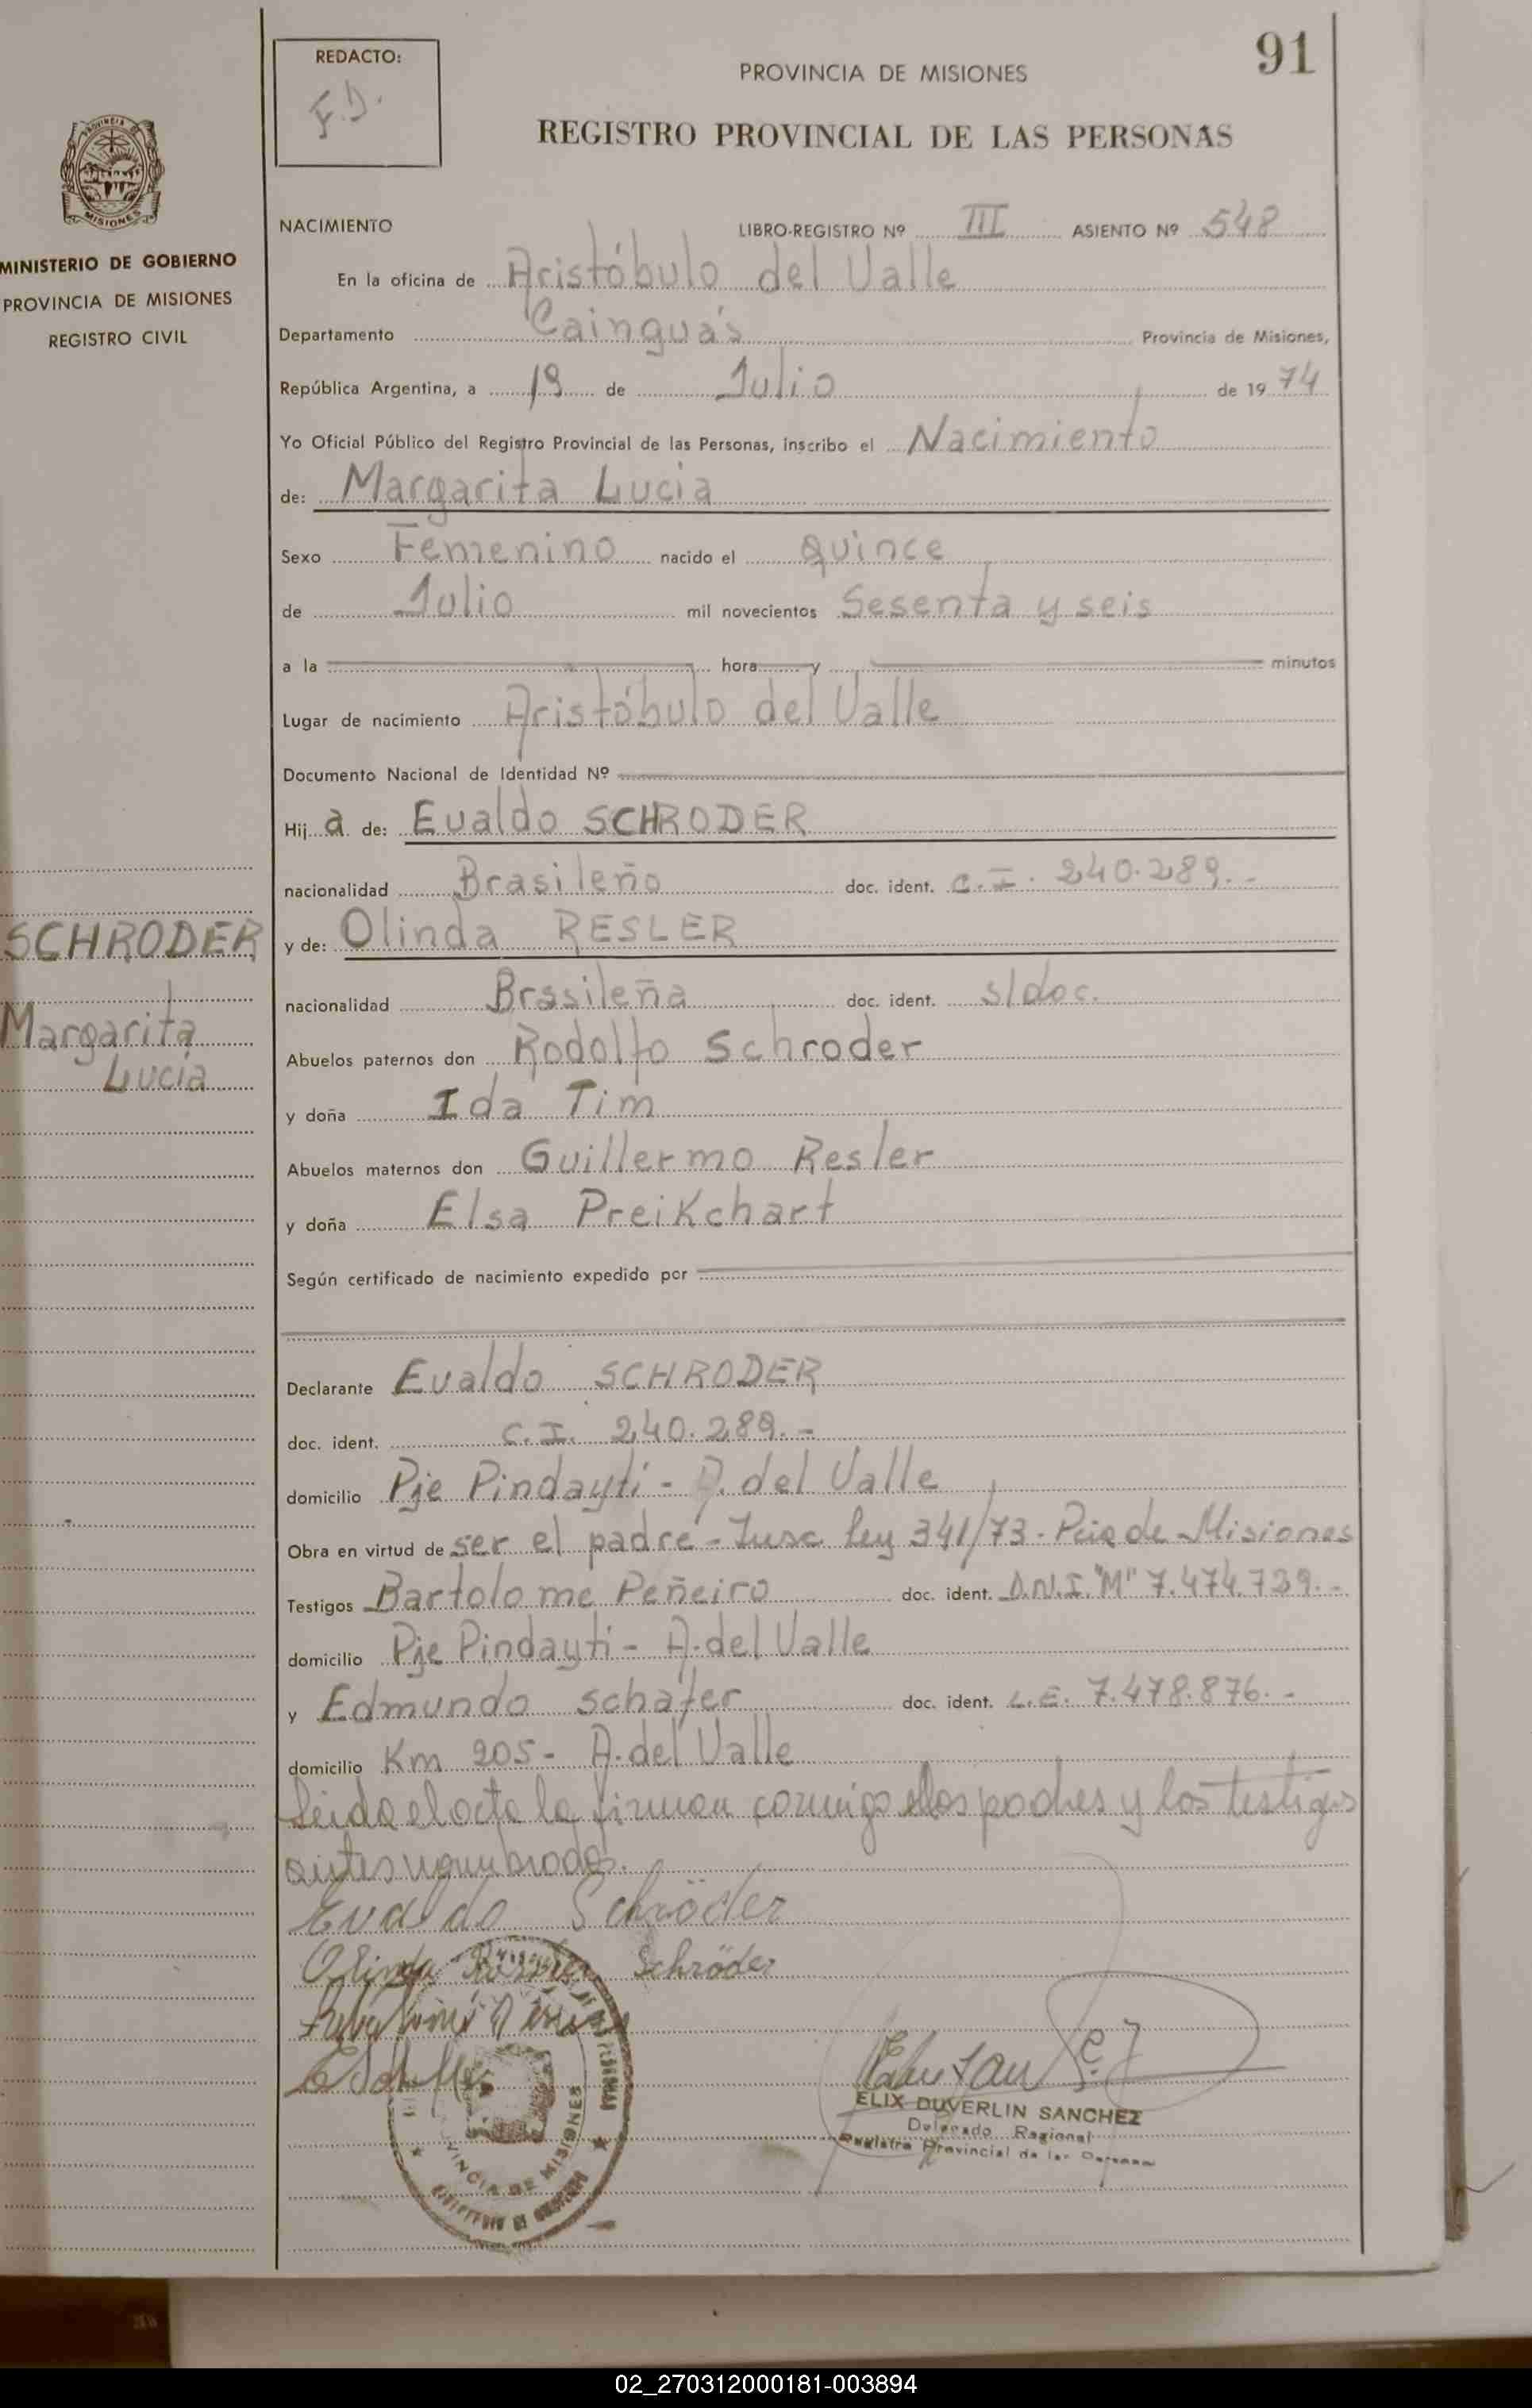 91
REDACTO:
F.D.
PROVINCIA DE MISIONES
REGISTRO PROVINCIAL DE LAS PERSONAS
MISIONES
MINISTERIO DE GOBIERNO
PROVINCIA DE MISIONES
REGISTRO CIVIL
NACIMIENTO LIBRO-REGISTRO Nº III ASIENTO Nº 548
En la oficina de Aristóbulo del Valle
Departamento Cainguás Provincia de Misiones,
República Argentina, a 19 de Julio de 1974
Yo Oficial Público del Registro Provincial de las Personas, inscribo el Nacimiento
de: Margarita Lucia
Sexo Femenino nacido el quince
de Julio mil novecientos Sesenta y seis
a la hora y minutos
Lugar de nacimiento Aristóbulo del Valle
Documento Nacional de Identidad Nº
Hija de: Evaldo SCHRODER
nacionalidad Brasileño doc. ident. C.I. 240.289.-
SCHRODER
y de: Olinda RESLER
nacionalidad Brasileña doc. ident. s/doc.
Margarita
Lucia
Abuelos paternos don Rodolfo Schroder
y doña Ida Tim
Abuelos maternos don Guillermo Resler
y doña Elsa PreiKchart
Según certificado de nacimiento expedido por
Declarante Evaldo SCHRODER
doc. ident. C.I. 240.289.-
domicilio Pje Pindaytí - A. del Valle
Obra en virtud de ser el padre - Insc ley 341/73 - Pcia de Misiones
Testigos Bartolome Peñeiro doc. ident. D.N.I. "M" 7.474.739.-
domicilio Pje Pindayti - A. del Valle
y Edmundo Schafer doc. ident. L.E. 7.478.876.-
domicilio Km 205 - A. del Valle
Leida el acta la firman conmigo los padres y los testigos
antes nombrados.
Evaldo Schröder
Olinda Schröder
PROVINCIA DE MISIONES
ELIX DUVERLIN SANCHEZ
Delegado Regional
Registro Provincial de las Personas
02_270312000181-003894